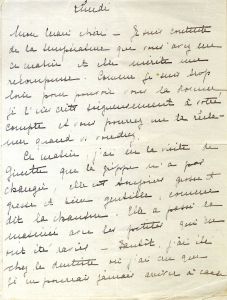 Lundi
Mon mari chéri – Je suis contente
de la température que vous avez eue
ce matin et elle mérite une
récompense. Comme je suis trop
loin pour pouvoir vous la donner
je l'inscrits soigneusement à votre
compte et vous pourrez me le récla-
mer quand v. voudrez.
Ce matin, j'ai eu la visite de
Ginette que la grippe n'a pas
changée, elle est toujours grosse et
grasse et bien gentille, comme
dit la chanson. Elle a passé la
matinée avec les petites qui en
ont été ravies – Tantôt, j'ai été
chez le dentiste où j'ai cru que
je ne pourrais jamais arriver à cause